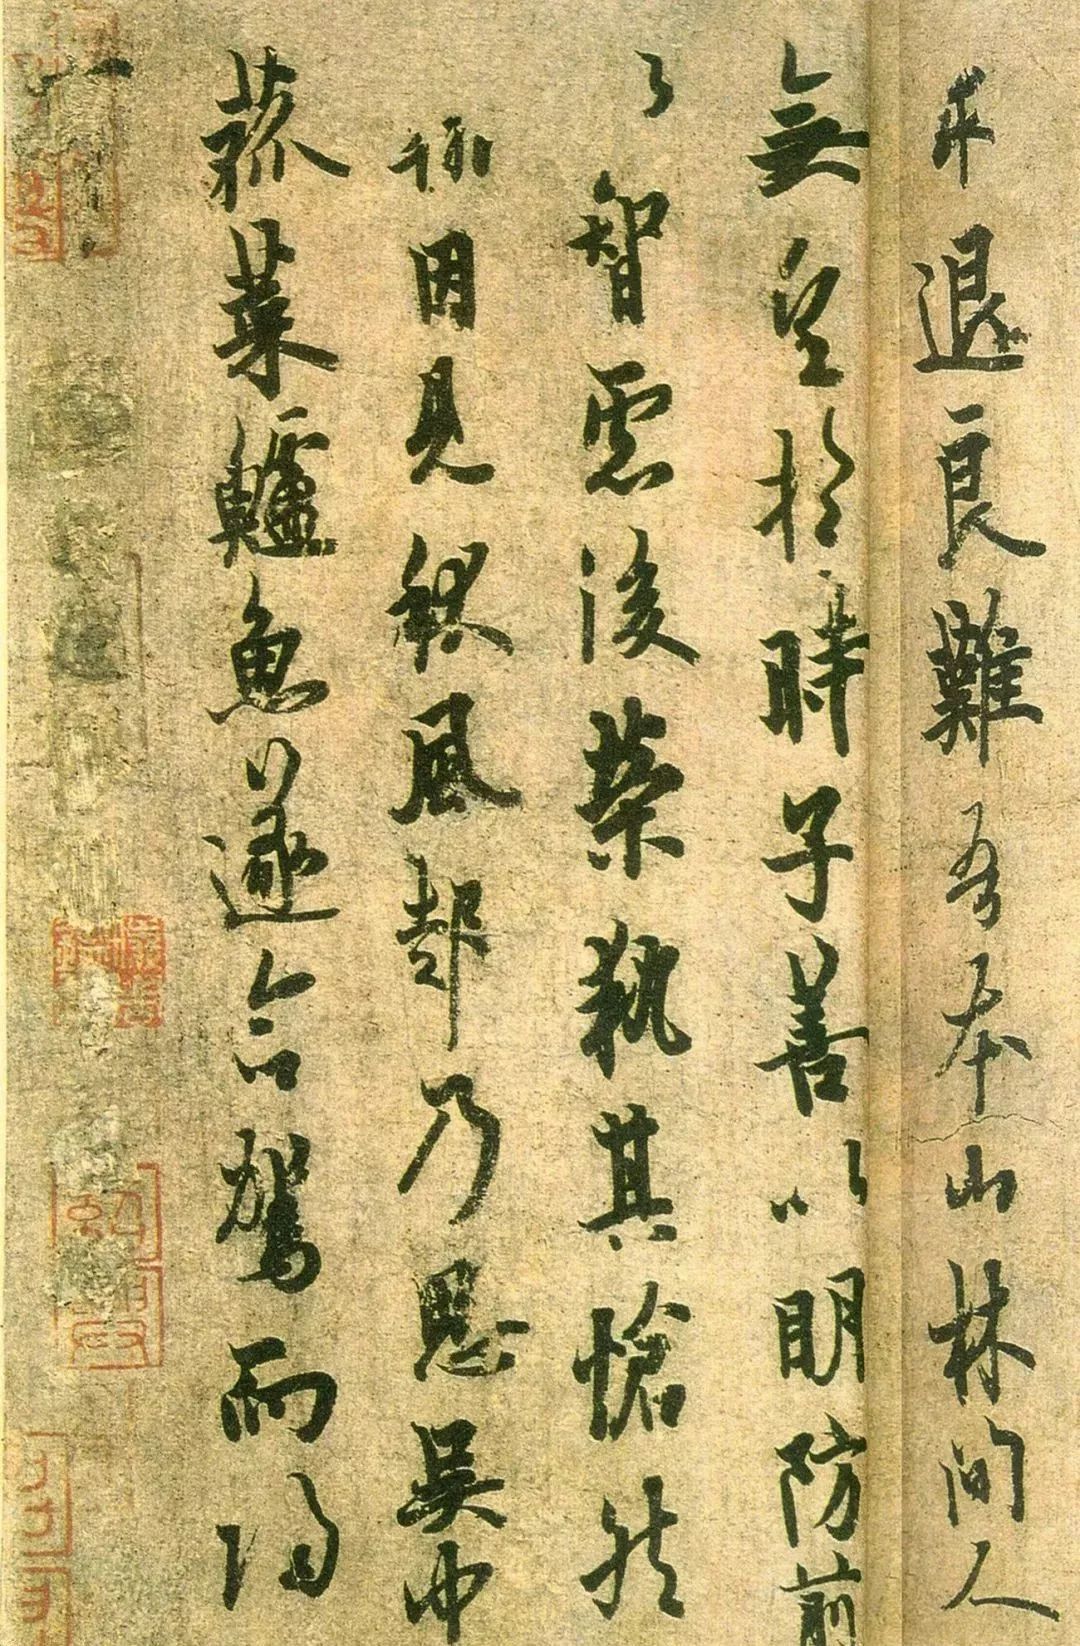 求退良難吾本山林間人
無望於時子善以明防前
以智慮後榮執其愴然
因見秋風起乃思吳中
菰菜鱸魚遂命駕而歸